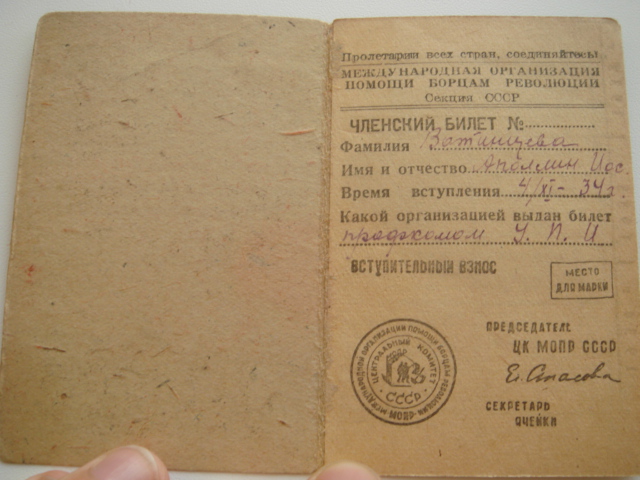 Пролетарии всех стран, соединяйтесь!
МЕЖДУНАРОДНАЯ ОРГАНИЗАЦИЯ
ПОМОЩИ БОРЦАМ РЕВОЛЮЦИИ
Секция СССР
ЧЛЕНСКИЙ БИЛЕТ №
Фамилия
Имя и отчество
Время вступления 4/XI - 34 г.
Какой организацией выдан билет
профкомом У. П. И
ВСТУПИТЕЛЬНЫЙ ВЗНОС
МЕСТО
ДЛЯ МАРКИ
МЕЖДУНАРОДНОЙ ОРГАНИЗАЦИИ ПОМОЩИ БОРЦАМ РЕВОЛЮЦИИ
МОПР
ЦЕНТРАЛЬНЫЙ КОМИТЕТ
СССР
ПРЕДСЕДАТЕЛЬ
ЦК МОПР СССР
Е. Стасова
СЕКРЕТАРЬ
ЯЧЕЙКИ